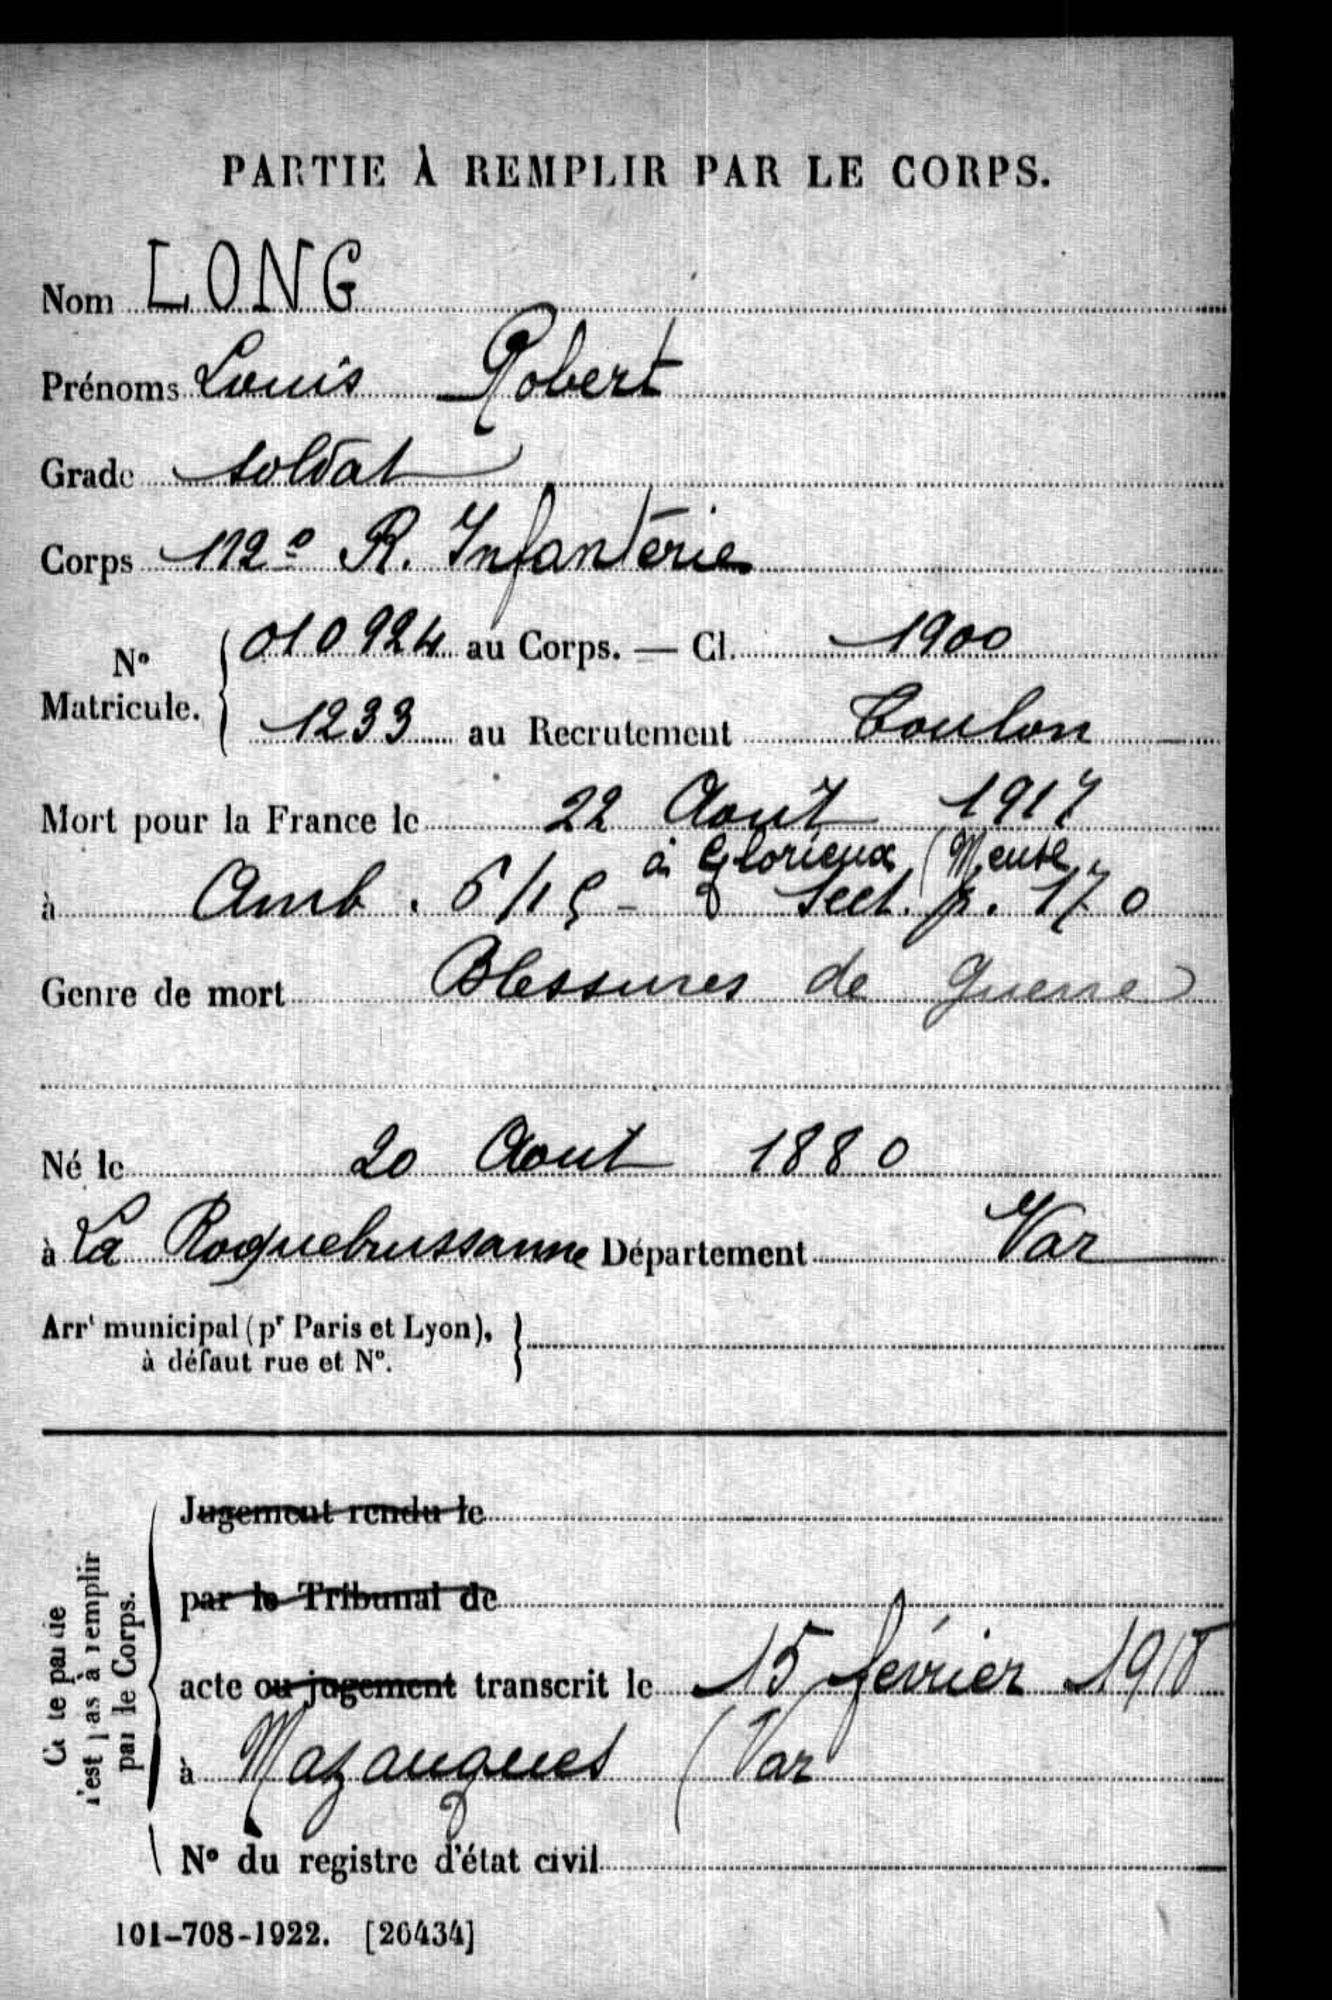 PARTIE À REMPLIR PAR LE CORPS.
Nom LONG
Prénoms Louis Robert
Grade soldat
Corps 112e R. Infanterie
N° Matricule. { 010924 au Corps. — Cl. 1900
1233 au Recrutement Toulon
Mort pour la France le 22 Aout 1917
à Glorieux (Meuse)
à Amb. 5/15 - Sect. p. 170
Genre de mort Blessures de guerre
Né le 20 Aout 1880
à La Roquebrussanne Département Var
Arrt municipal (pr Paris et Lyon),
à défaut rue et N°.
Cette partie
n'est pas à remplir
par le Corps.
Jugement rendu le
par le Tribunal de
acte ou jugement transcrit le 15 février 1918
à Mazaugues (Var
N° du registre d'état civil
101-708-1922. [26434]